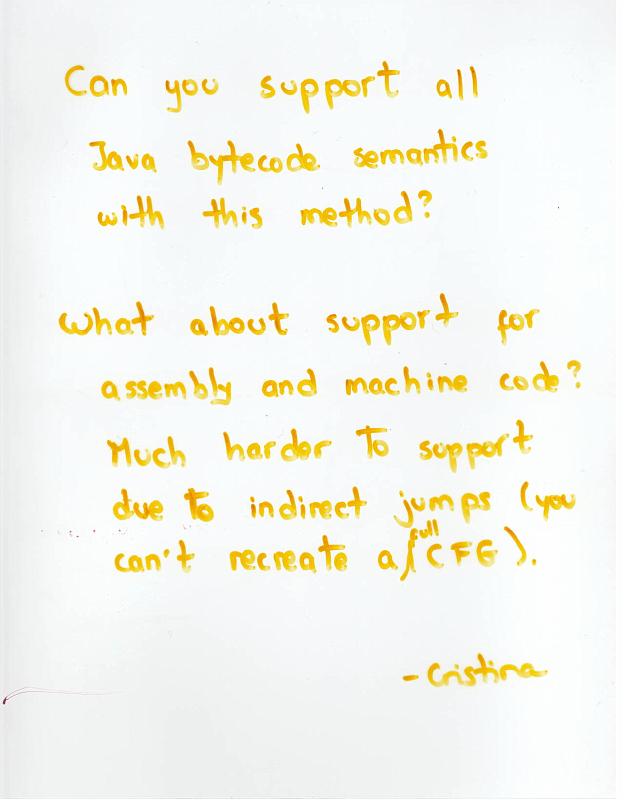 Can you support all
Java bytecode semantics
with this method?
What about support for
assembly and machine code?
Much harder to support
due to indirect jumps (you
can't recreate a full CFG).
- Cristina